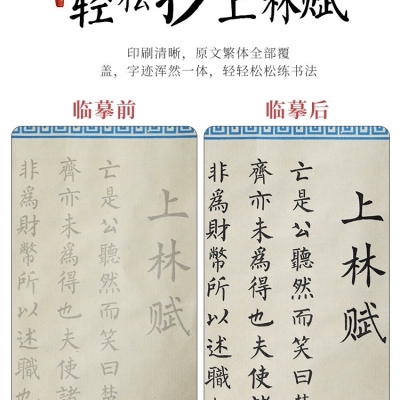 轻松抄上林赋
印刷清晰，原文繁体全部覆
盖，字迹浑然一体，轻轻松松练书法
临摹前
临摹后
上林赋
亡是公聽然而笑曰楚
齊亦未為得也夫使諸
非為財幣所以述職也
上林赋
亡是公聽然而笑曰楚
齊亦未為得也夫使諸
非為財幣所以述職也